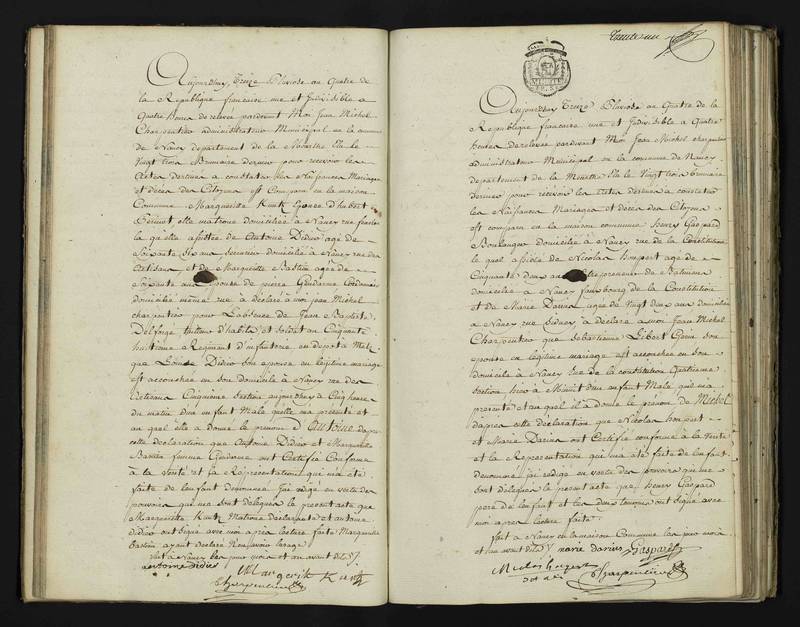 Aujourdhuy, Treize Pluviose an Quatre de
la République française une et Indivisible a
Quatre heures de relevée pardevant Moi Jean Michel
Charpentier administrateur Municipal en la commune
de Nancy departement de la Meurthe Elu le
Vingt trois Brumaire dernier pour recevoir les
Actes destinés a constater les Naissances Mariages
et décès des Citoyens est Comparu en la maison
Commune Marguerite Kuntz Epouse d'hubert
elle matrone domiciliée à Nancy rue
la qu'elle assistée de Antoine Didier agé de
Soixante Six ans domicilié à Nancy rue des
Artisans et de Marguerite Bastien agée de
Soixante ans Epouse de pierre Gendarme Cordonnier
domiciliée même rue à déclaré a moi jean Michel
charpentier pour L'absence de Jean Baptiste
Delforge tailleur d'habits et soldat au Cinquante
huitieme Regiment d'infanterie en depot a Metz
que Louise Didier son epouse en legitime mariage
est accouchée en son domicile à Nancy rue des
Artisans Cinquieme Section aujourdhuy à Cinq heures
du matin d'un enfant Male qu'elle m'a présenté et
au quel elle a donné le prenom d'Antoine dapres
cette déclaration que Antoine Didier et Marguerite
Bastien femme Gendarme ont Certifié Conforme
à la Verité et la Représentation qui m'a été
faite de l'enfant denommé jai rédigé en vertu des
pouvoirs qui me sont délégués le present acte que
Marguerite Kuntz Matrone déclarante et antoine
didier ont signé avec moi apres lecture faite Marguerite
Bastien ayant declaré
fait à Nancy les jour mois et an avant dits
antoine didier
Margerit Kuntz
Charpentier
Trente un
Aujourdhuy Treize Pluviose an Quatre de la
République française une et Indivisible a Quatre
heures de relevée pardevant Moi Jean Michel charpentier
administrateur Municipal en la commune de Nancy
departement de la Meurthe Elu le Vingt trois brumaire
dernier pour recevoir les Actes destinés a constater
les Naissances Mariages et décès des Citoyens
est comparu en la maison commune henry Gaspard
Boulanger domicilié à Nancy rue de la Constitution
le quel assisté de Nicolas honport agé de
Cinquante deux ans entrepreneur de Batimens
domicilié à Nancy fauxbourg de la Constitution
et de Marie agée de Vingt deux ans domiciliée
à Nancy rue sidney à déclaré a moi Jean Michel
Charpentier que Sebastienne Libert son
épouse en légitime mariage est accouchée en son
domicile à Nancy rue de la constitution Quatrieme
Section hier à Minuit d'un enfant Male qui m'a
presenté et au quel il à donné le prénom de Michel
dapres cette déclaration que Nicolas honport
et Marie ont Certifié conforme à la Verité
et la Représentation qui m'a été faite de l'enfant
denommé jai rédigé en vertu des pouvoirs qui me
sont délégués le present acte que henry Gaspard
pere de l'enfant et les deux temoins ont signé avec
moi apres lecture faite
fait à Nancy en la maison Commune les jour mois
et an avant dits marie Gaspard
Nicolas
Charpentier